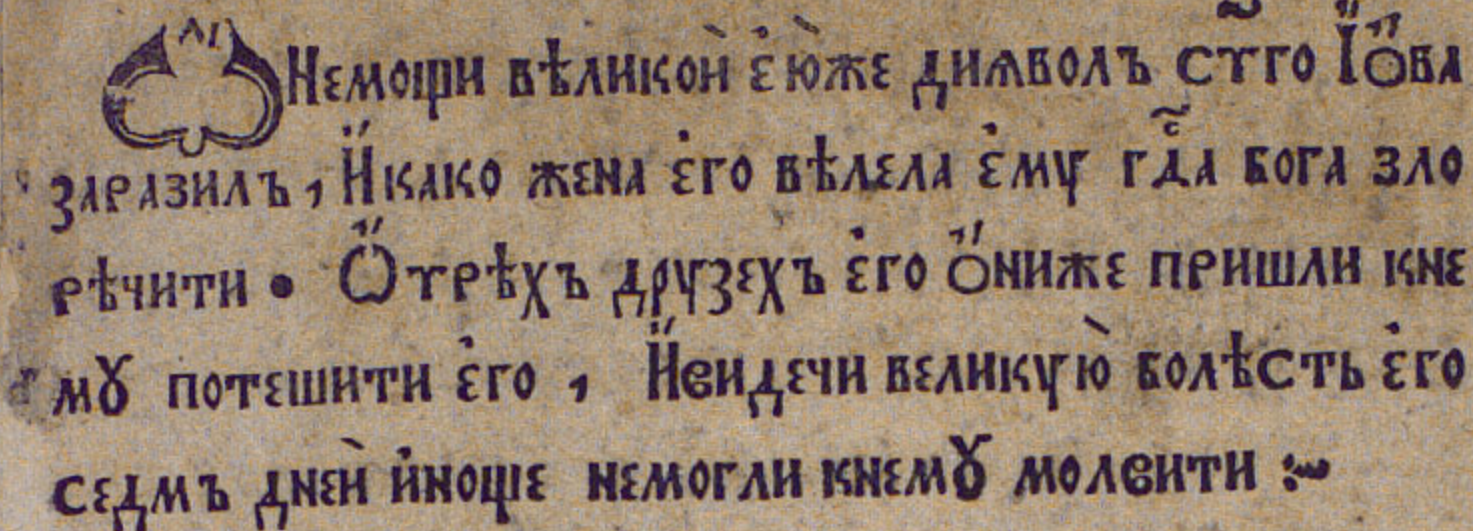 Ѡ Немощи вѣликои҆ е҆ю҆же диꙗволъ ст҃го І҆о҆ва
заразилъ, И҆како жена е҆го вѣлела е҆мꙋ гд҃са бога зло
рѣчити • Ѡ҆трѣхъ дрꙋзехъ е҆го о҆ниже пришли кне
мꙋ потешити е҆го , И҆видечи великꙋю̀ болѣсть е҆го
седмъ дней и҆ноще немогли кнемꙋ молвити :~